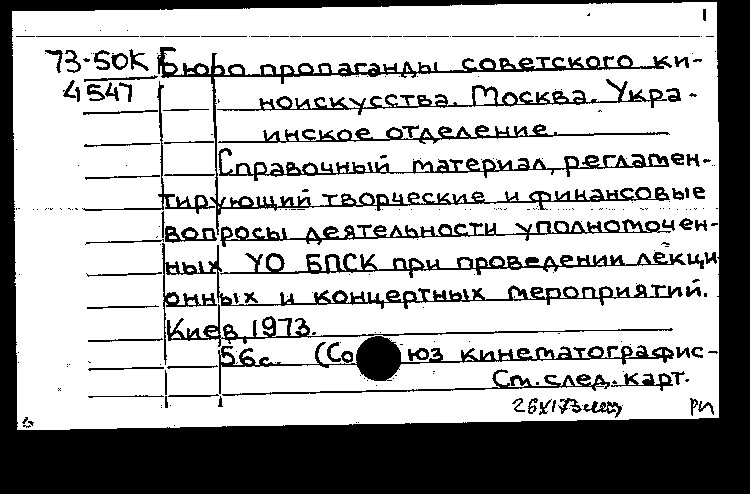 1
73-50К Бюро пропаганды советского ки-
4547 ноискусства. Москва. Укра-
инское отделение.
Справочный материал, регламен-
тирующий творческие и финансовые
вопросы деятельности уполномочен-
ных УО БПСК при проведении лекци
онных и концертных мероприятий.
Киев, 1973.
56с. (Союз кинематографис-
См. след. карт.
РП